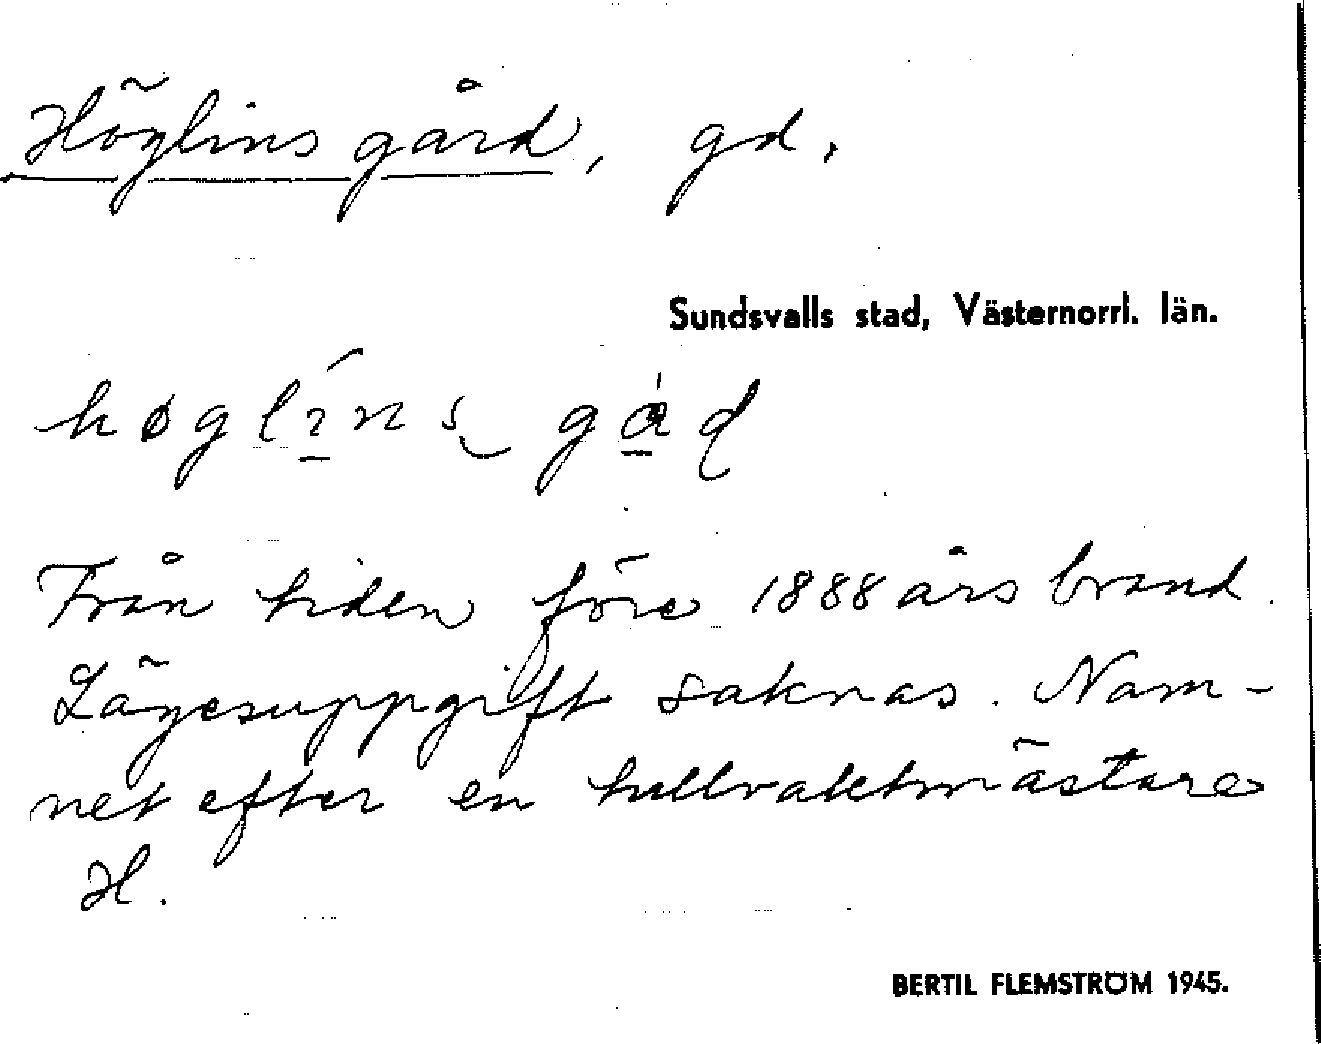 Höglins gård, gd.
Sundsvalls stad, Västernorrl. län.
Från tiden före 1888 års brand.
Lägesuppgift saknas. Nam-
net efter en tullvaktmästare
H.
BERTIL FLEMSTRÖM 1945.